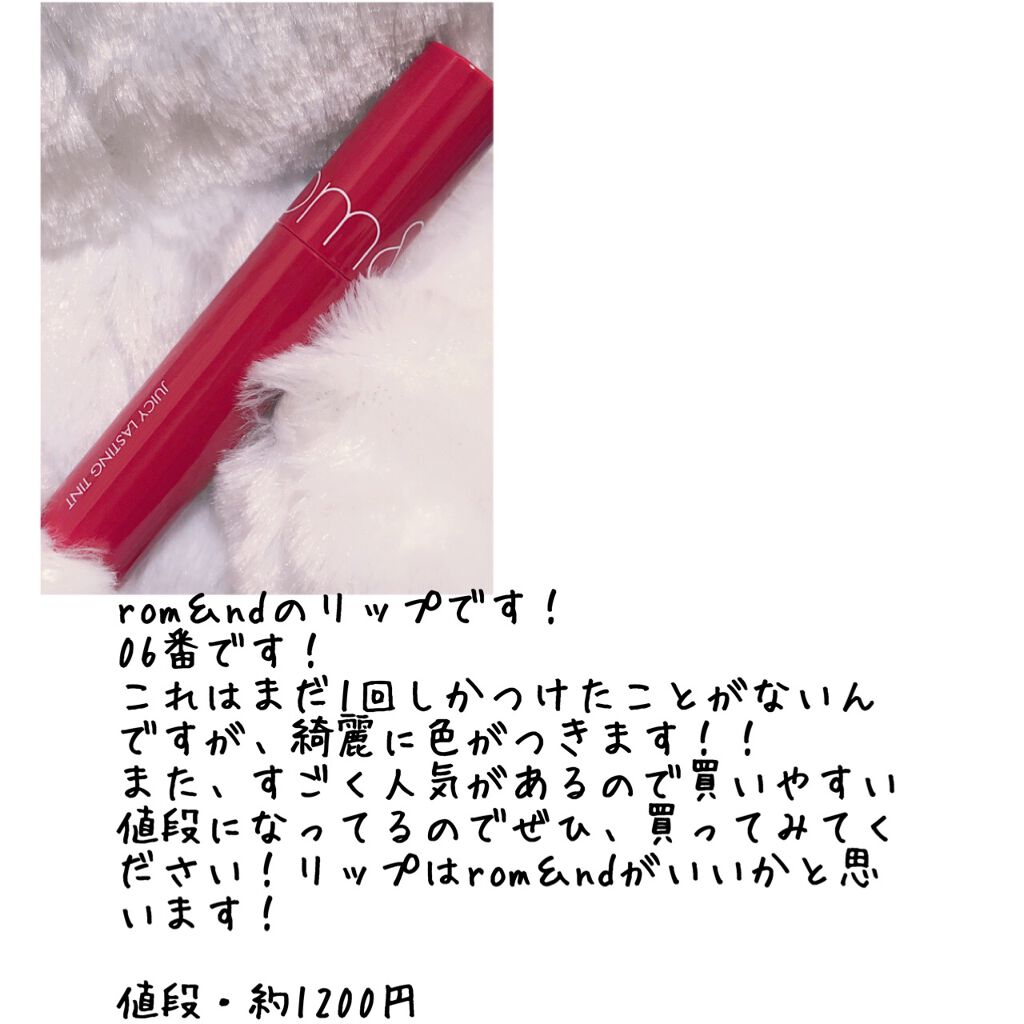 om&
JUICY LASTING TINT
rom&ndのリップです！
06番です！
これはまだ1回しかつけたことがないん
ですが、綺麗に色がつきます！！
また、すごく人気があるので買いやすい
値段になってるのでぜひ、買ってみてく
ださい！リップはrom&ndがいいかと思
います！
値段・約1200円